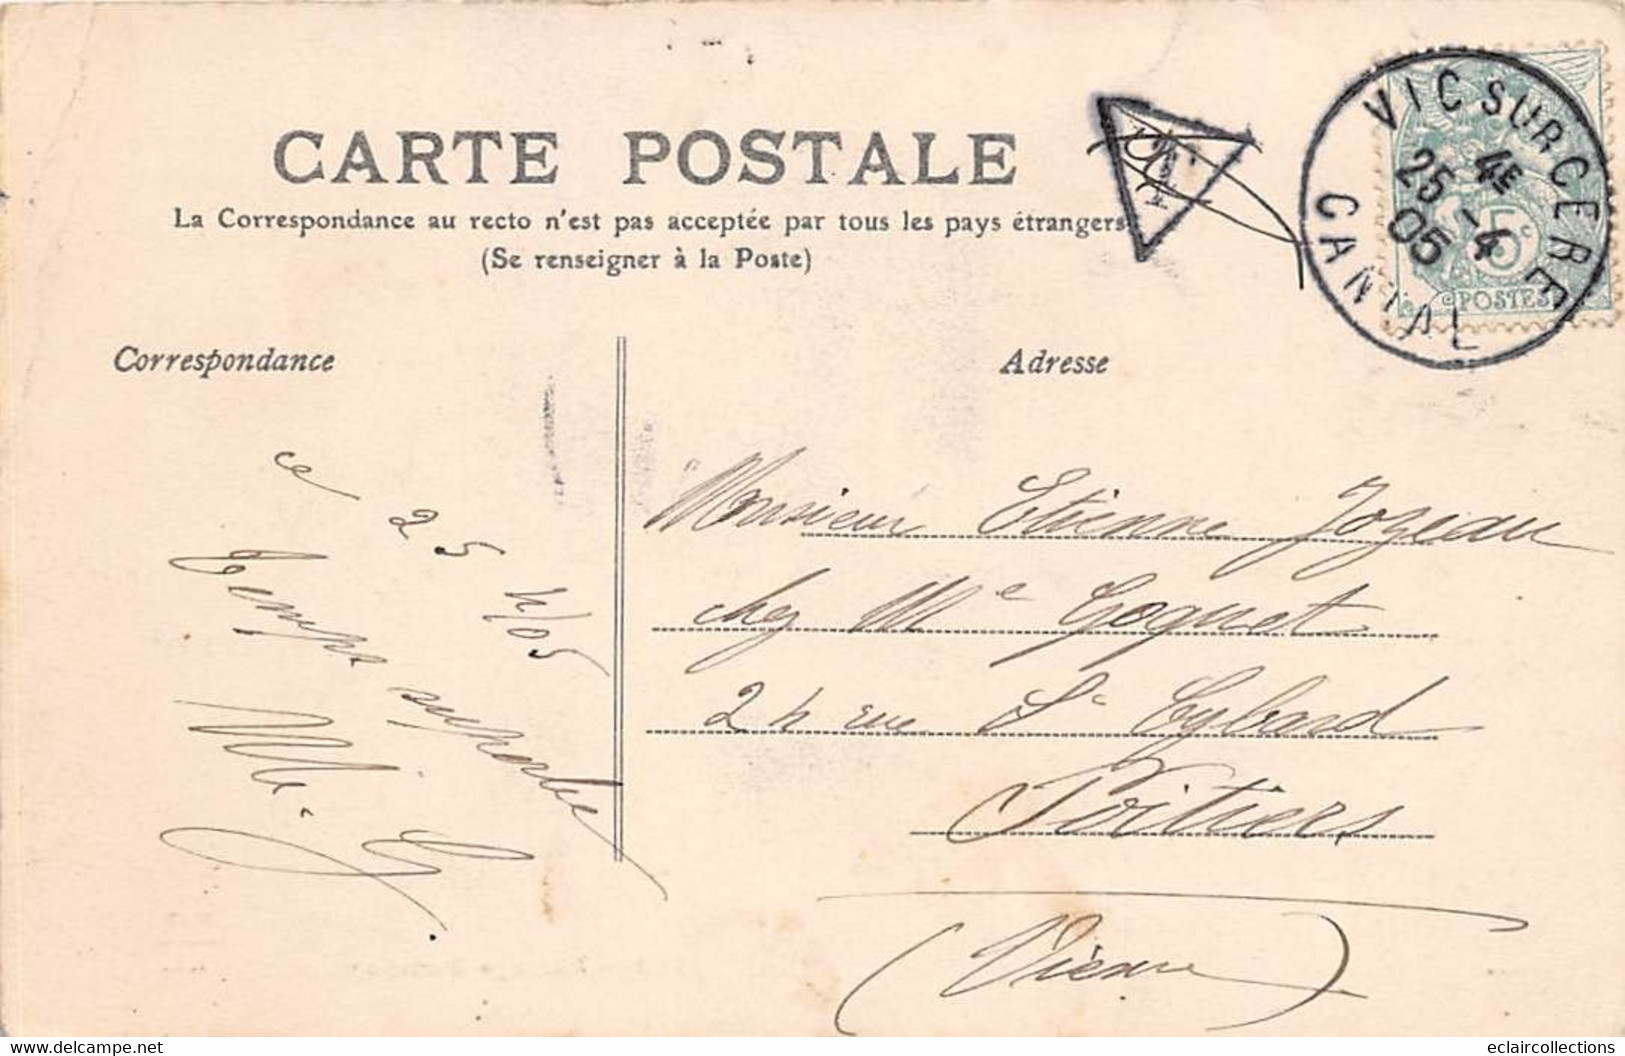 CARTE POSTALE
La Correspondance au recto n'est pas acceptée par tous les pays étrangers
(Se renseigner à la Poste)
VIC SUR CERE
4E
25 -4
05
CANTAL
5c
POSTES
Correspondance
Adresse
ce 25 4/05
temps superbe
M. G.
Monsieur Etienne Jozeau
chez Me Goguet
24 rue St Cybard
Poitiers
(Vienne)
delcampe.net
eclaircollections